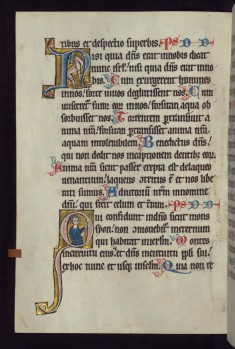 dantibus et despectio superbis. Ps. D. D.
Nisi quia dns erat in nobis dicat
nunc isrl'. nisi quia dns erat in no
bis. Cum exurgerent homines
in nos. forte vivos deglutissent nos. Cum
irasceret furor eor in nos. forsitan aqua ob
sorbuisset nos. Torrentem ptransivit a
nima nra. forsitan ptransisset anima nra
aquam intolerabilem. Benedictus dns.
qui non dedit nos in captionem dentibz eor.
Anima nra sicut passer erepta est de laqueo
venantium. laqueus contritus e et nos libe
rati sumus. Adiutoriu nrm in nomine
dni. qui fecit celum et terram. Ps. D. D.
Qui confidunt in dno sicut mons
syon. non comovebit in eternum
qui habitat in ierlm. Montes
in circuitu eius. et dns in circuitu ppli sui.
ex hoc nunc et usqz in sclm. Quia non re